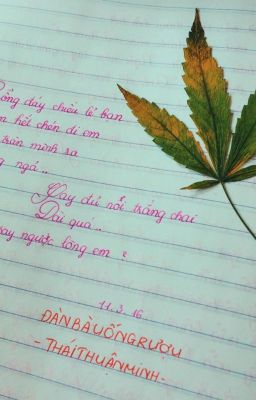 đáy chiều lẻ bạn
hết chén đi em
trần mình ra
ngả ..
Say đủ nỗi trắng chai
Dài quá ..
say ngược lòng em ?
11.3.16
ĐÀN BÀ UỐNG RƯỢU
- THÁI THUẬN MINH -